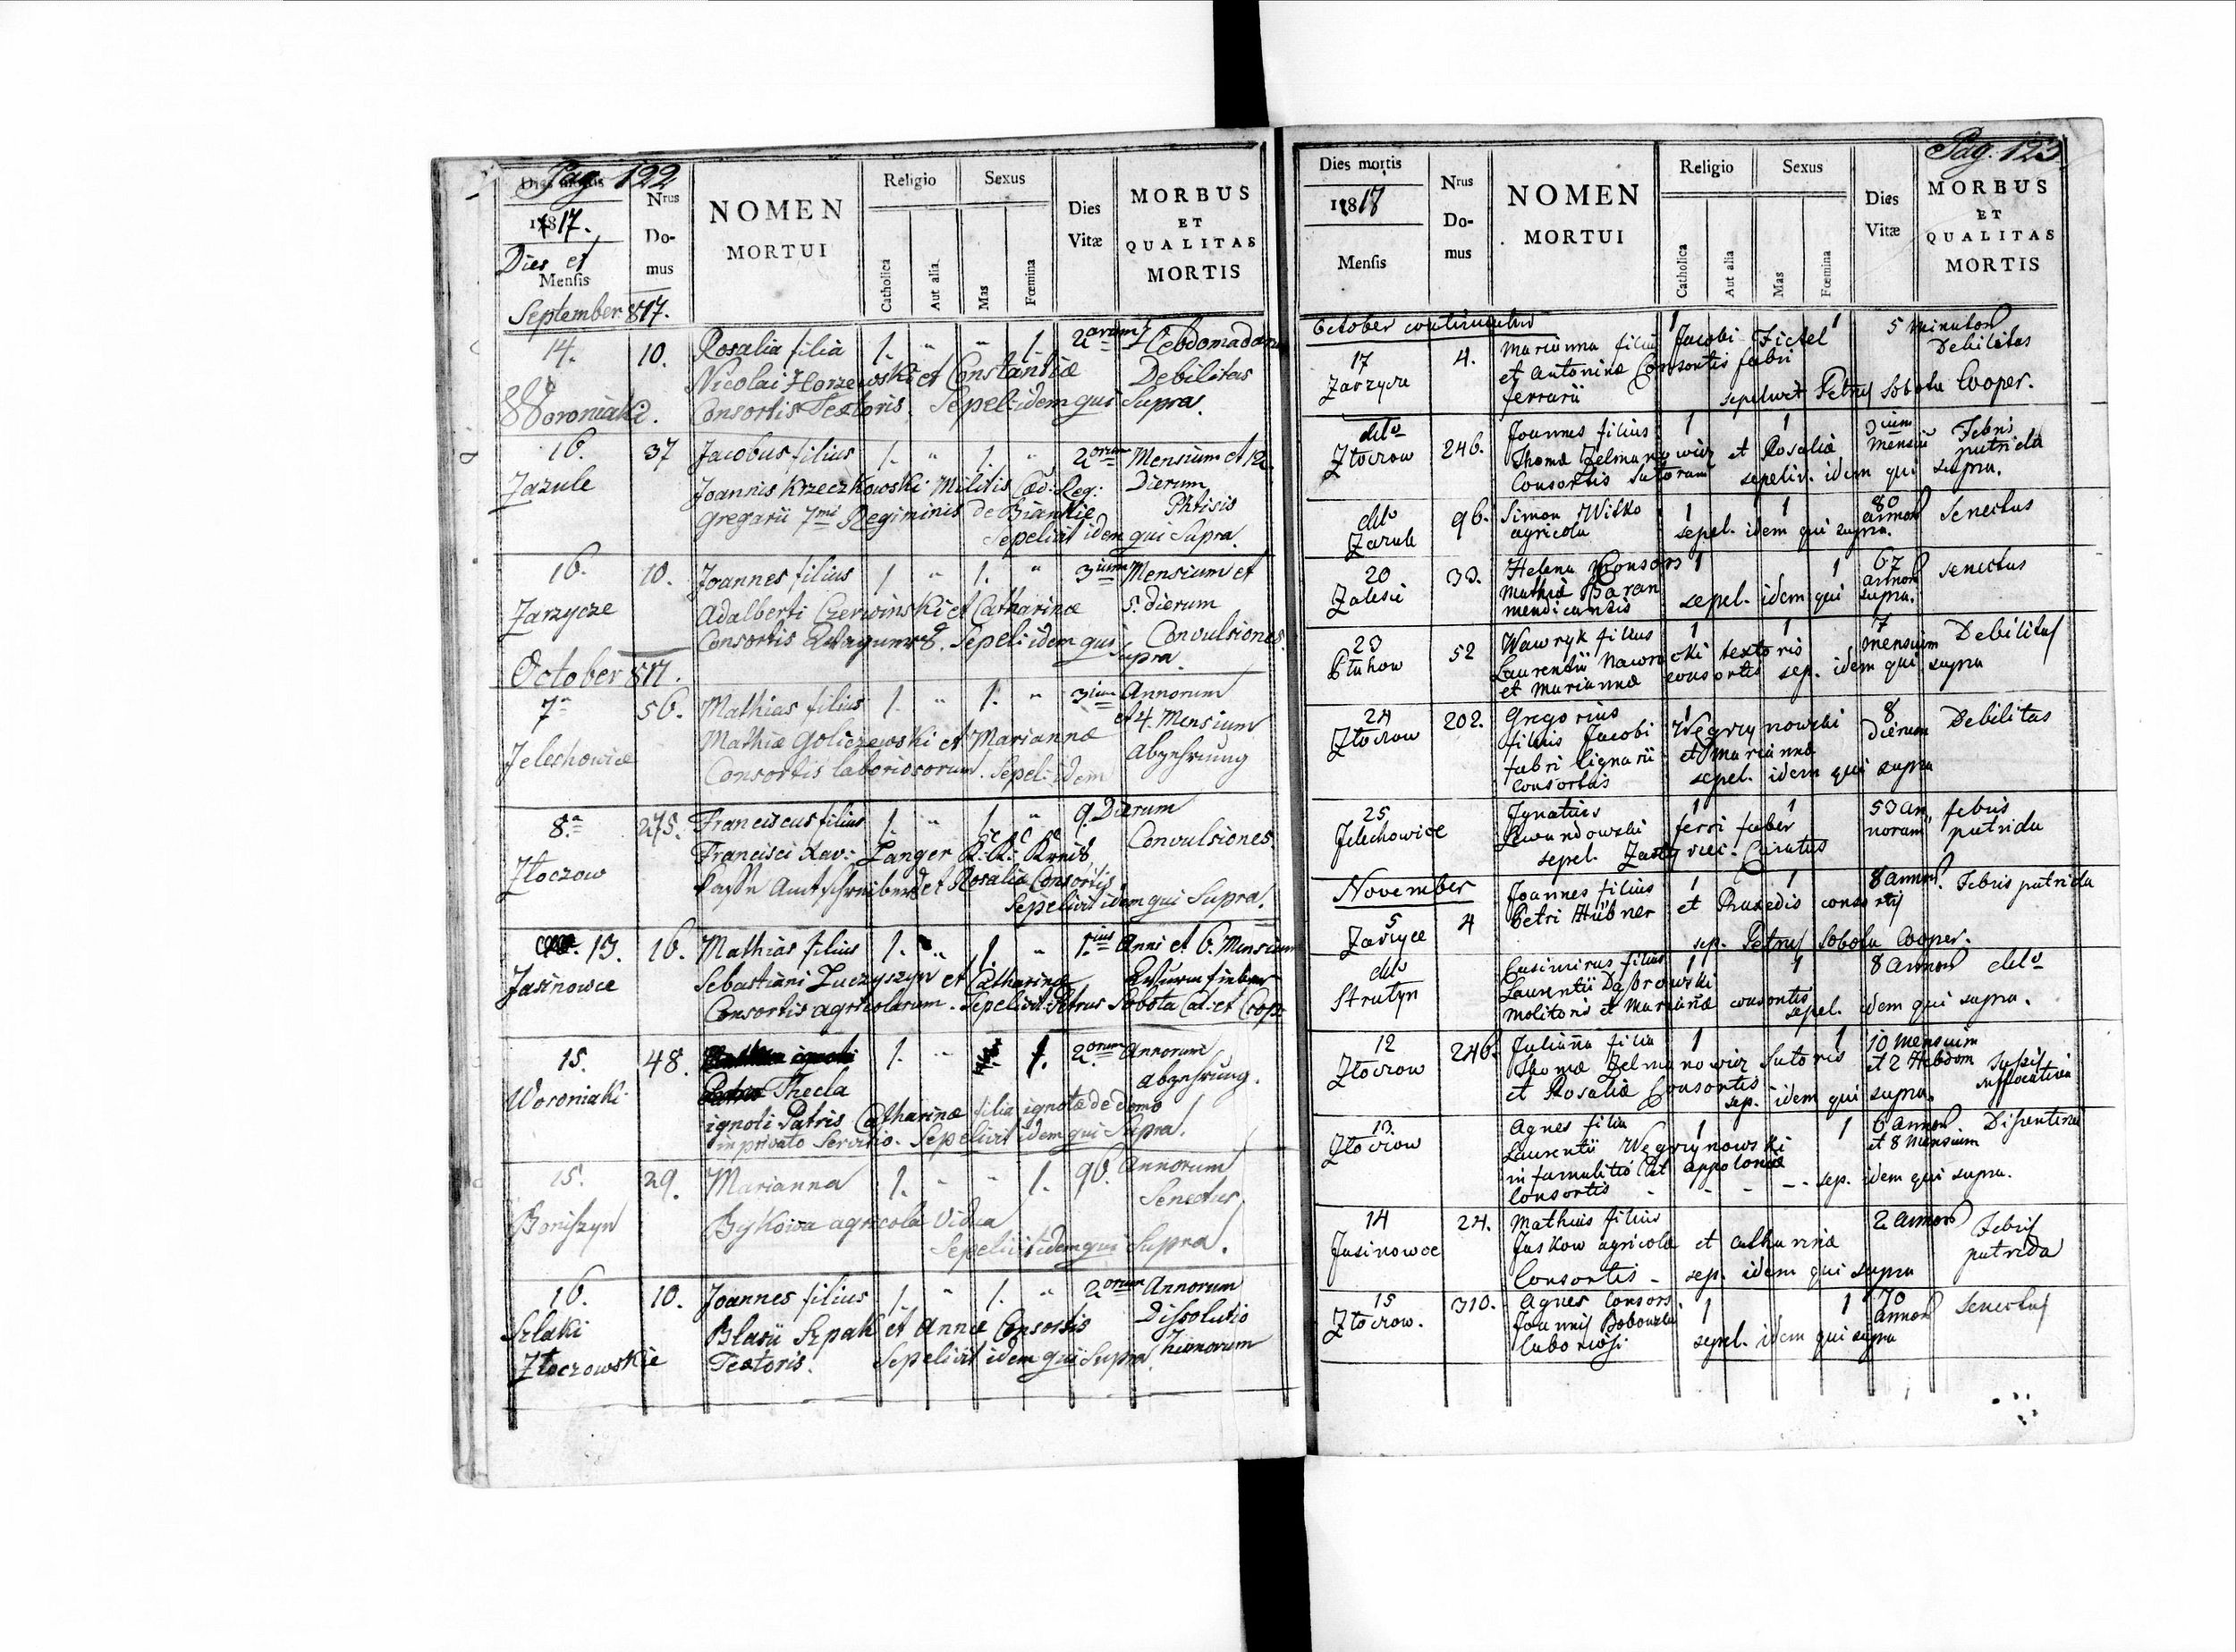 Pag. 122
Dies mortis
1817.
Dies et
Mensis
Nrus
Do-
mus
NOMEN
MORTUI
Religio
Catholica
Aut alia
Sexus
Mas
Fœmina
Dies
Vitæ
MORBUS
ET
QUALITAS
MORTIS
September 817.
14. 10. Rosalia filia 1. " " 1. 2arum Hebdomadarum
Nicolai Horzewski et Constantiæ Debilitas
Woroniaki. Consortis Textoris. Sepel: idem qui Supra.
16. 37 Jacobus filius 1. " 1. " 2orum Mensium et 12
Zazule Joannis Krzeczkowski Militis Cæs: Reg: Dierum
Gregarii 7mi Regiminis de Phtisis
Sepelivit idem qui Supra.
16. 10. Joannes filius 1 " 1. " 3ium Mensium et
Zarzycze Adalberti Czerwinski et Catharinæ 5. dierum
Consortis Sepeli: idem qui Convulsiones.
Supra.
October 817.
7a 56. Mathias filius 1. " 1. " 3ium Annorum
et 4. Mensium
Mathiæ Goliczewski et Mariannæ
Jelechowice Consortis laboriosorum. Sepel: idem Abzehrung
8.a 275. Franciscus filius 1. " 1. " 9. Dierum
Francisci Xav: Langer K: K: Kreis Convulsiones.
Złoczow Amtschreibers et Rosalia Consortis
Sepelivit idem qui Supra.
13. 16. Mathias filius 1. " 1. " 1.ius Anni et 6. Mensium
Jasinowce Sebastiani Luczyszyn et Catharinæ
Consortis agricolarum. Sepelivit Petrus Sobota Cat: et Coop:
15. 48. 1. " 1. 2.orum Annorum
Thecla Abzehrung.
Woroniaki. ignoti Patris Catharinæ filia ignotæ de domo
in privato Servitio. Sepelivit idem qui Supra.
15. 29. Marianna 1. " " 1. 96. Annorum
Senectus.
Boniszyn Bykowa agricola Vidua
Sepelivit idem qui Supra.
16. 10. Joannes filius 1. " 1. " 2orum Annorum
Szlaki Blasii Szpak et Annæ Consortis Dissolutio
Złoczowskie Textoris. Sepelivit idem qui Supra.
Pag. 123
Dies mortis
1818
Mensis
Nrus
Do-
mus
NOMEN
MORTUI
Religio
Catholica
Aut alia
Sexus
Mas
Fœmina
Dies
Vitæ
MORBUS
ET
QUALITAS
MORTIS
October continuatur
17 4. Marianna filia Jacobi Fictel 1 1 5 Minutor
Zarzycze et Antoninæ Consortis fabri Debilitas
ferrarii sepelivit Petrus Sobota Cooper.
detto 246. Joannes filius 1 1 3ium Febris
Złoczow Thomæ Zelmanowicz et Rosaliæ Mensiu putrida
Consortis Sutorum sepeliv. idem qui supra.
detto 96. Simon Witko 1 1 80 Senectus
Zazule agricola sepel. idem qui supra. annor
20 33. Helena Consors 1 1 67 senectus
Zalesie Mathiæ Baran annor
mendicantis sepel. idem qui supra.
23 52 Wawryk filius 1 1 7 Debilitas
Płuhow Laurentii Nawrocki textoris mensium
et Mariannæ consortis sep. idem qui supra
24 202. Gregorius 1 8 Debilitas
Złoczow filius Jacobi Węgrzynowski Dierum
fabri lignarii et Mariannæ
Consortis sepel. idem qui supra
25 Ignatius 1 1 53 an febris
Jelechowice Lewandowski ferri faber norum putrida
sepel. Curatus
November
5 4 Joannes filius 1 1 8 annor. Febris putrida
Zarzyce Petri Hübner et Praxedis consortis
sep. Petrus Sobota Cooper.
detto Casimirus filius 1 1 8 Annor detto
Strutyn Laurentii Dąbrowski
Molitoris et Mariañæ consortis sepel. idem qui supra.
12 246. Juliañna filia 1 1 10 mensium
Złoczow Thomæ Zelmanowicz Sutoris et 2 Hebdom
et Rosaliæ Consortis sep. idem qui supra. suffocativa
13. Agnes filia 1 1 6 annor Disenteria
Złoczow Laurentii Węgrzynowski et 8 Mensium
in famulitio et appoloniæ
Consortis - - - - sep. idem qui supra.
14 24. Mathias filius 2 annor Febris
Jasinowce Jaskow agricolæ et Catharinæ putrida
Consortis - sep. idem qui supra
15 310. Agnes Consors 1 1 70 Senectus
Złoczow. Joannis annor
laboriosi sepel. idem qui supra